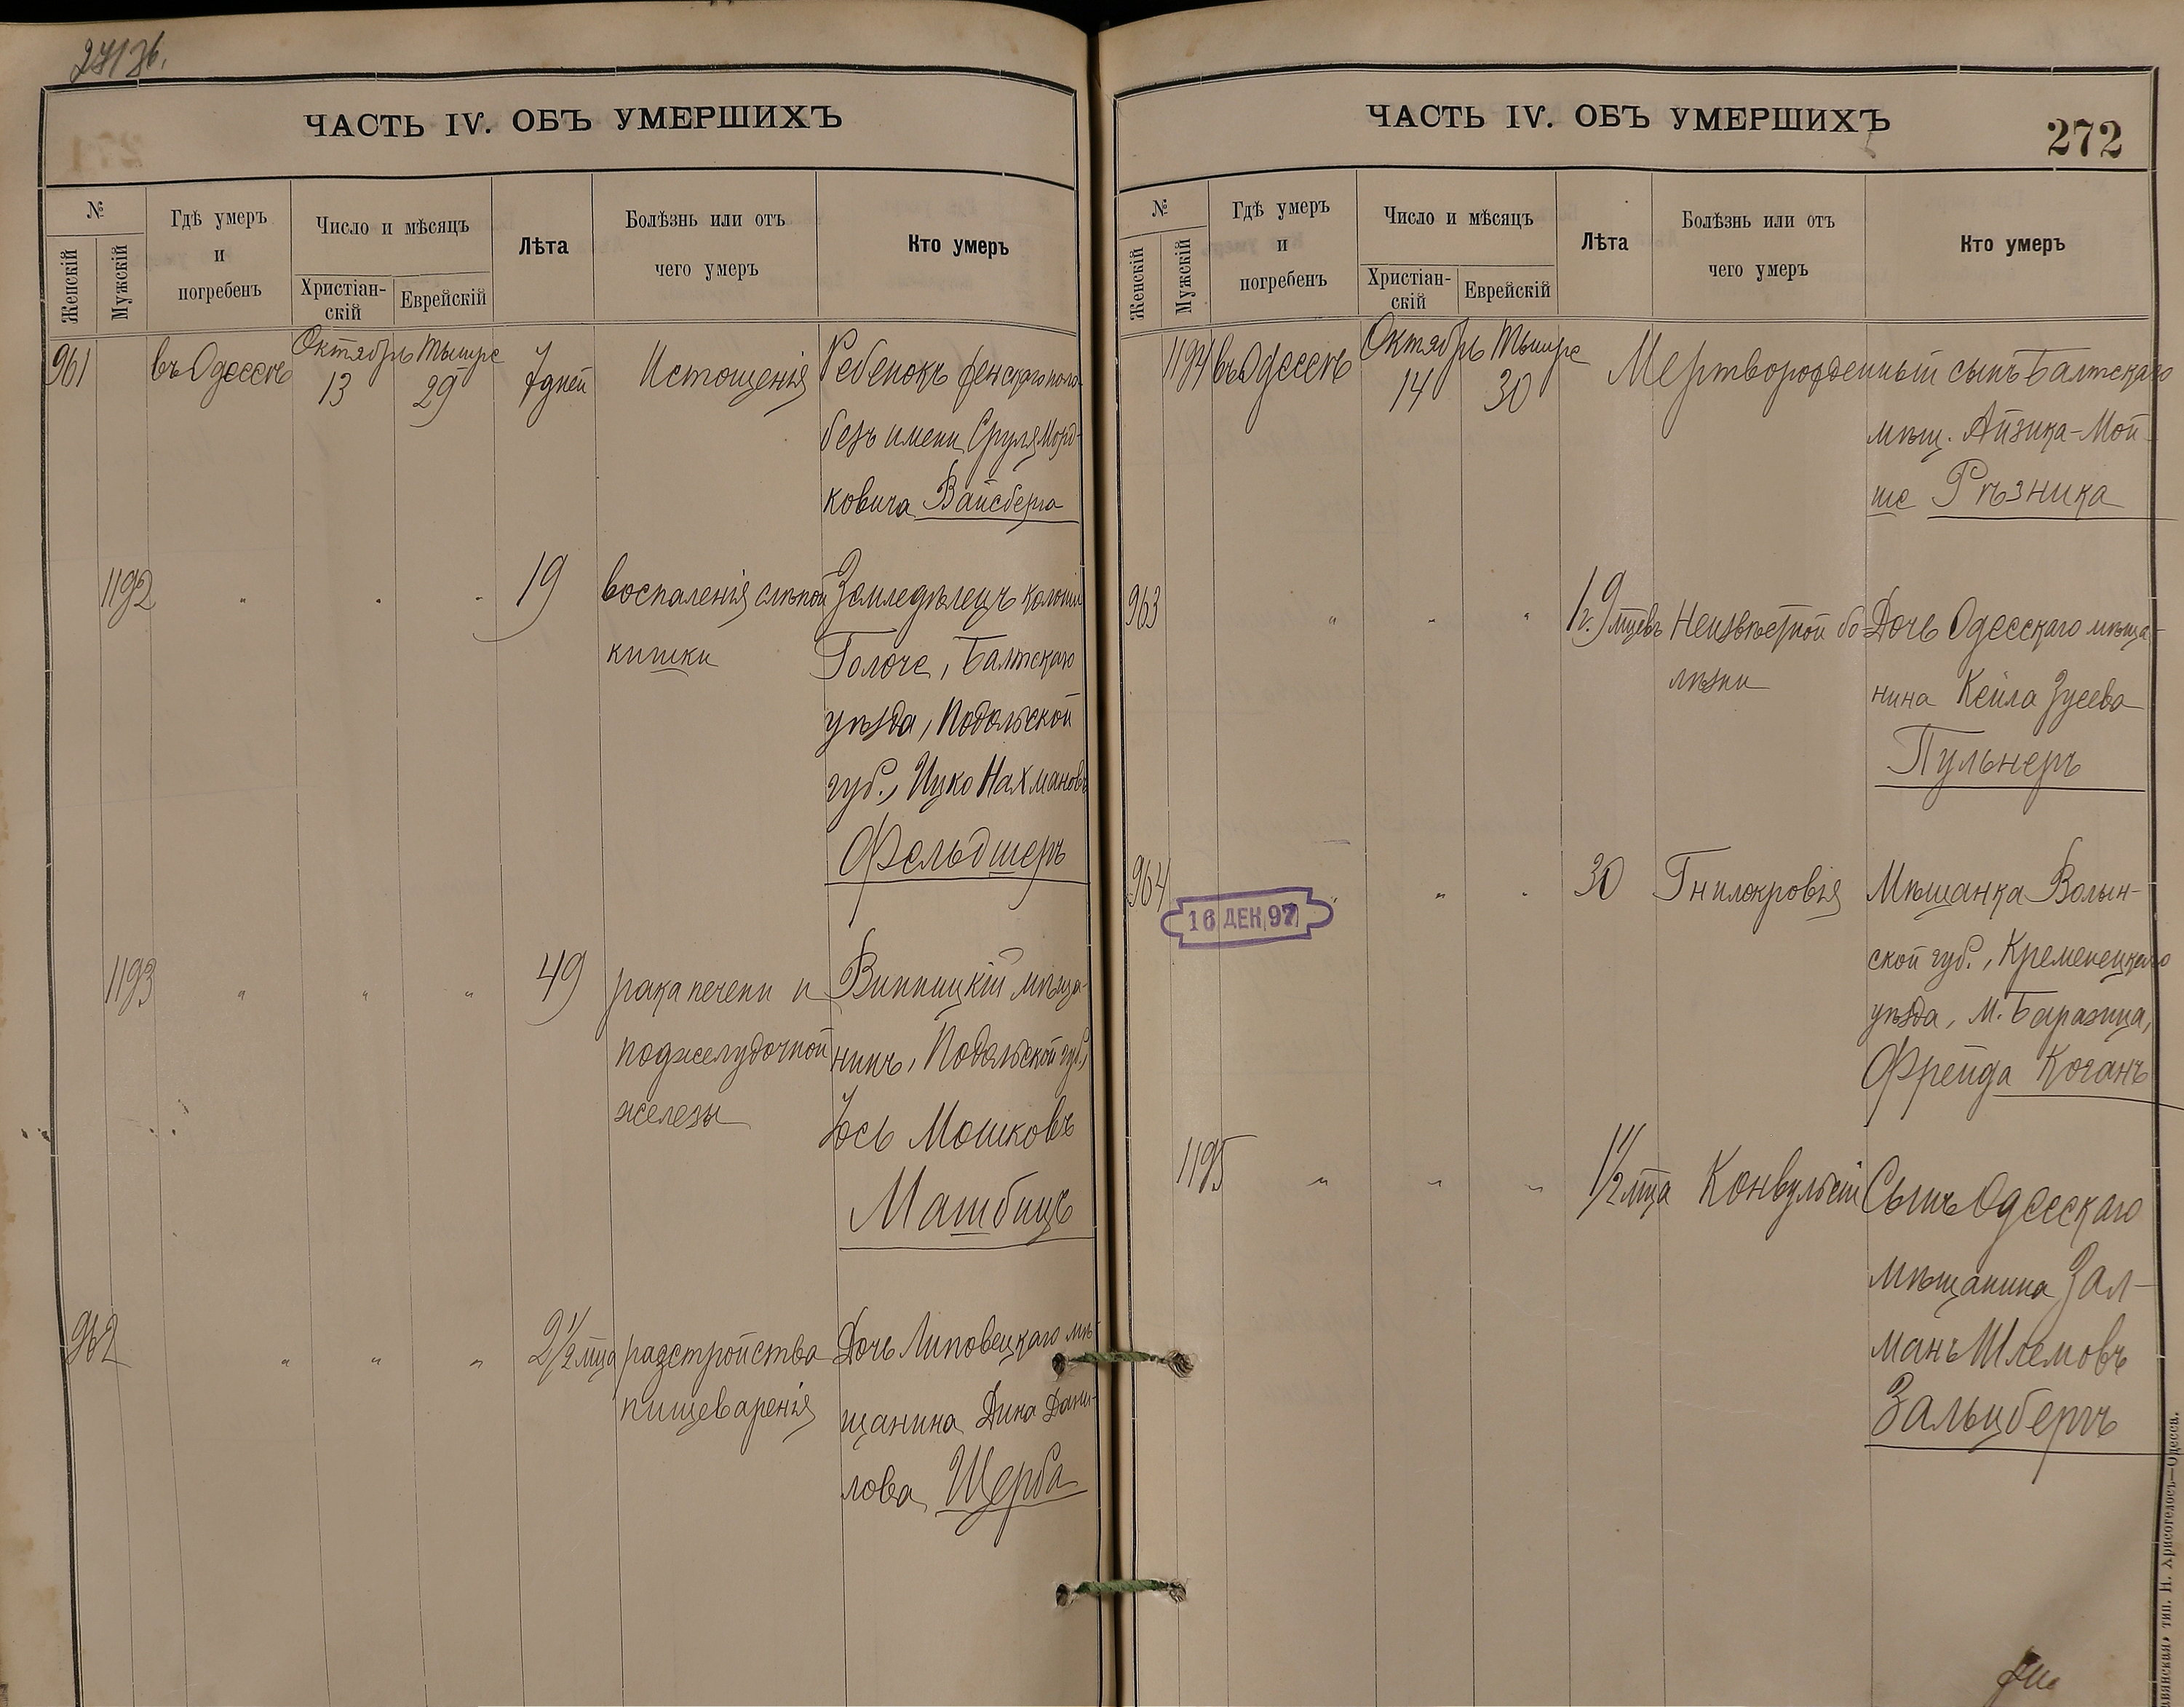 ЧАСТЬ IV. ОБЪ УМЕРШИХЪ
№
Женскій
Мужскій
Гдѣ умеръ
и
погребенъ
Число и мѣсяцъ
Христіан-
скій
Еврейскій
Лѣта
Болѣзнь или отъ
чего умеръ
Кто умеръ
961
въ Одессѣ
Октябрь Тышре
13 29
7 дней
Истощенія
Ребенокъ женскаго пола
безъ имени Сруля Морд-
ковича Вайсберга
1192 " " "
19
воспаленія слѣпой
кишки
Земледѣлецъ колоніи
Голоче, Балтскаго
уѣзда, Подольской
губ., Ицко Нахмановъ
Фельдшеръ
1193 " " "
49
рака печени и
поджелудочной
железы
Винницкій мѣща-
нинъ, Подольской губ.,
Іось Мошковъ
Машбицъ
962 " " "
2 1/2 мца
разстройства
пищеваренія
Дочь Липовецкаго мѣ-
щанина Дина Дани-
лова Щерба
ЧАСТЬ IV. ОБЪ УМЕРШИХЪ
272
№
Женскій
Мужскій
Гдѣ умеръ
и
погребенъ
Число и мѣсяцъ
Христіан-
скій
Еврейскій
Лѣта
Болѣзнь или отъ
чего умеръ
Кто умеръ
1194
въ Одессѣ
Октябрь Тышре
14 30
Мертворожденный сынъ Балтскаго
мѣщ. Айзика-Мой-
ше Рѣзника
963 " " "
1 г. 9 мцевъ
Неизвѣстной бо-
лѣзни
Дочь Одесскаго мѣща-
нина Кейла Зусева
Пульнеръ
964 " " "
16 ДЕК 97
30
Гнилокровія
Мѣщанка Волын-
ской губ., Кременецкаго
уѣзда, м. Баразица,
Фрейда Коганъ
1195 " " "
1 1/2 мца
Конвульсій
Сынъ Одесскаго
мѣщанина Зал-
манъ Шлемовъ
Зальцбергъ
тип. Н. Хрисогелосъ—Одесса.